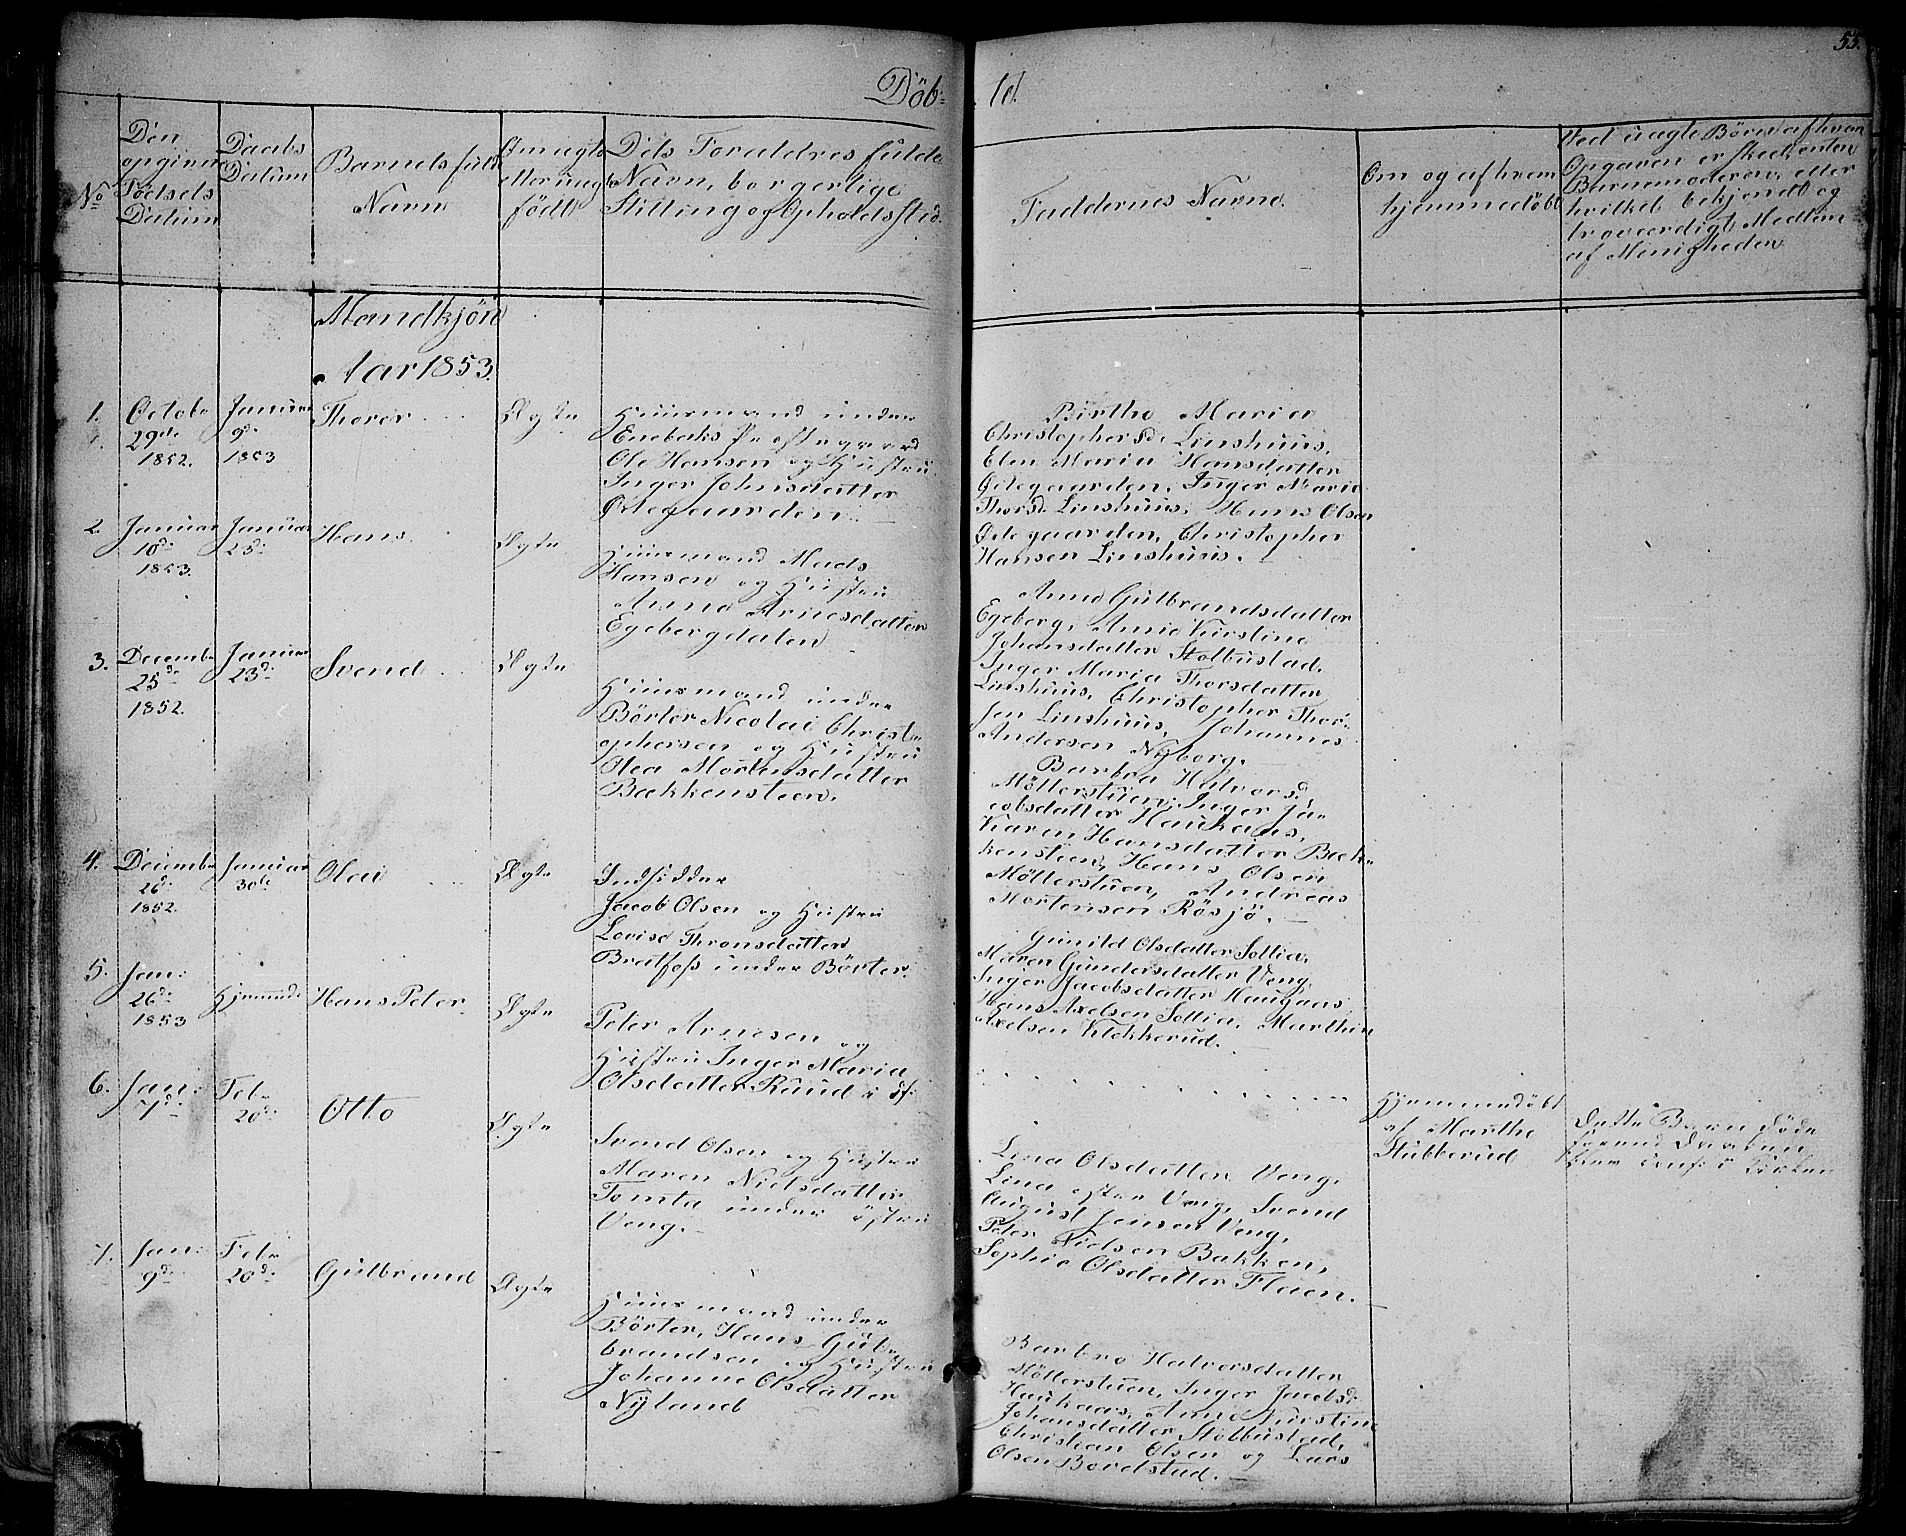 55.
Döb= te.
No
Den opgivne Födsels Datum
Daabs Datum
Barnets fulde Navn
Om ægte eller uægte födt
Dets Forældres fulde Navn, borgerlige Stilling og Opholdssted.
Faddernes Navne.
Om og af hvem hjemmedöbt
Ved uægte Börn af hvem Opgaven er skeet, enten Barnemoderen, eller hvilket bekjendt og troværdigt Medlem af Menigheden
Mandkjön
Aar 1853.
1.
Octobr 29de 1852.
Januar 9de 1853
Thorer
Ægte
Huusmand under
Enebaks Præstegaard
Ole Hansen og Hustru
Inger Johnsdatter
Östegaarden.
Birthe Maria
Christophersd. Linshuus,
Elen Maria Hansdatter
Östegaarden, Inger Marie
Thorsd. Linshuus, Hans Olsen
Östegaarden, Christopher
Hansen Linshuus.
2.
Januar 10de 1853.
Januar 23de
Hans
Ægte
Huusmand Mads
Hansen og Hustru
Anne Arnesdatter
Egebergdalen
Anne Gulbrandsdatter
Egeberg, Anne Kirstine
Johansdatter Stolbustad,
Inger Maria Thorsdatter
Linshuus, Christopher Thor-
sen Linshuus, Johannes
Andersen Nyborg.
3.
Decembr 25de 1852.
Januar 23de
Svend
Ægte
Huusmand under
Börter Nicolai Christ-
ophersen og Hustru
Olea Mortensdatter
Bækkensteen.
Barbra Halvorsd.
Möllerstuen, Inger Ja-
cobsdatter Haukaas,
Karen Hansdatter Bæk-
kensteen, Hans Olsen
Möllerstuen, Andreas
Mortensen Rösjö.
4.
Decembr 26de 1852.
Januar 30te
Olai
Ægte
Indsidder
Jacob Olsen og Hustru
Lovise Thronsdatter
Bratfoss under Börter.
Gunild Olsdatter Sollia,
Maren Gundersdatter Veng,
Inger Jacobsdatter Haugaas,
Hans Axelsen Sollia, Marthin
Axelsen Klokkerud.
5.
Jan: 26de 1853
Hjemmed:
Hans Peter
Ægte
Peter Arnesen og
Hustru Inger Maria
Olsdatter Ruud
Hjemmedöbt
af Marthe
Stubberud
Dette Barn döde
forend Daaben
blev conf: i Kirken
6.
Jan: 7de
Febr 20de
Otto
Ægte
Svend Olsen og Hustru
Maren Nielsdatter
Tomta under östre
Veng.
Lina Olsdatter Veng,
Lina östre Veng, Svend
August Jensen Veng,
Peter Nielsen Bakken,
Sophie Olsdatter Flaen.
7.
Jan: 9de
Febr 20de
Gulbrand
Ægte
Huusmand under
Börter, Hans Gul-
brandsen og Hustru
Johanne Olsdatter
Nyland
Barbro Halvorsdatter
Möllerstuen, Inger Jacobsd.
Haukaas, Anne Kirstine
Johansdatter Stolbustad,
Christian Olsen og Lars
Olsen Bordstad.